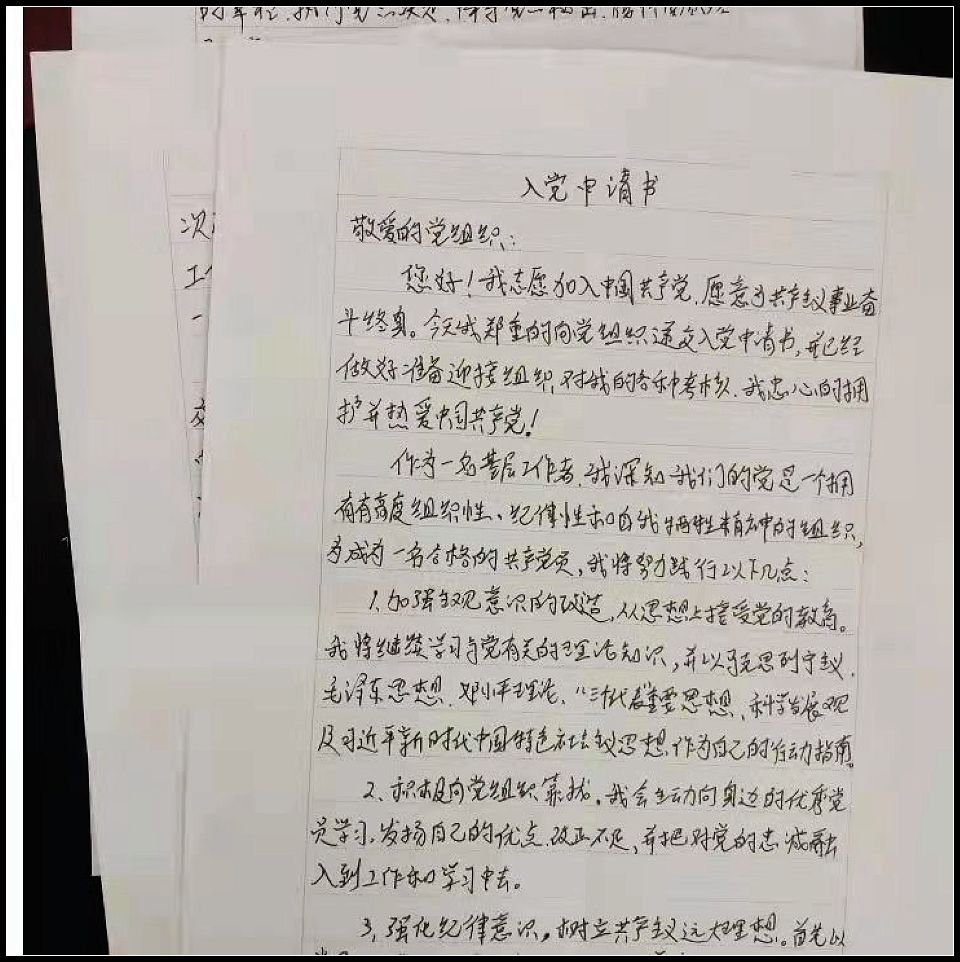 的章程,执行党的决定,保守党的秘密,
入党申请书
敬爱的党组织:
您好!我志愿加入中国共产党,愿意为共产主义事业奋
斗终身。今天我郑重的向党组织递交入党申请书,并已经
做好准备迎接组织对我的各种考核.我忠心的拥
护并热爱中国共产党!
作为一名基层工作者,我深知我们的党是一个拥
有有高度组织性、纪律性和自我牺牲精神的组织,
为成为一名合格的共产党员,我将努力践行以下几点:
1.加强主观意识的改造,从思想上接受党的教育。
我将继续学习与党有关的理论知识,并以马克思列宁主义,
毛泽东思想、邓小平理论、“三个代表”重要思想、科学发展观
及习近平新时代中国特色社会主义思想作为自己的行动指南。
2、积极向党组织靠拢。我会主动向身边的优秀党
员学习,发扬自己的优点,改正不足,并把对党的忠诚融
入到工作和学习中去。
3、强化纪律意识,树立共产主义远大理想。首先以
次
工
一